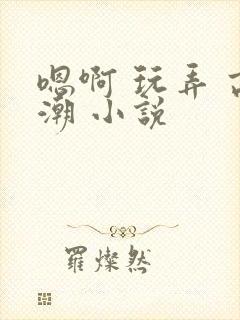 嗯啊 玩弄 高
潮 小說
羅燦然